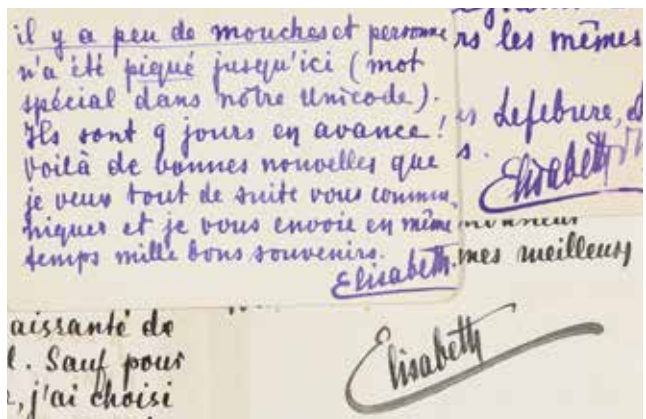 il y a peu de mouches et personne
n'a été piqué jusqu'ici (mot
spécial dans notre Unicode).
Ils sont 9 jours en avance!
Voilà de bonnes nouvelles que
je veux tout de suite vous commu-
niquer et je vous envoie en même
temps mille bons souvenirs.
Elisabeth.
rs les mêmes
Lefebure, et
s.
Elisabeth
mes meilleurs
Elisabeth
aissante de
l. Sauf pour
e, j'ai choisi